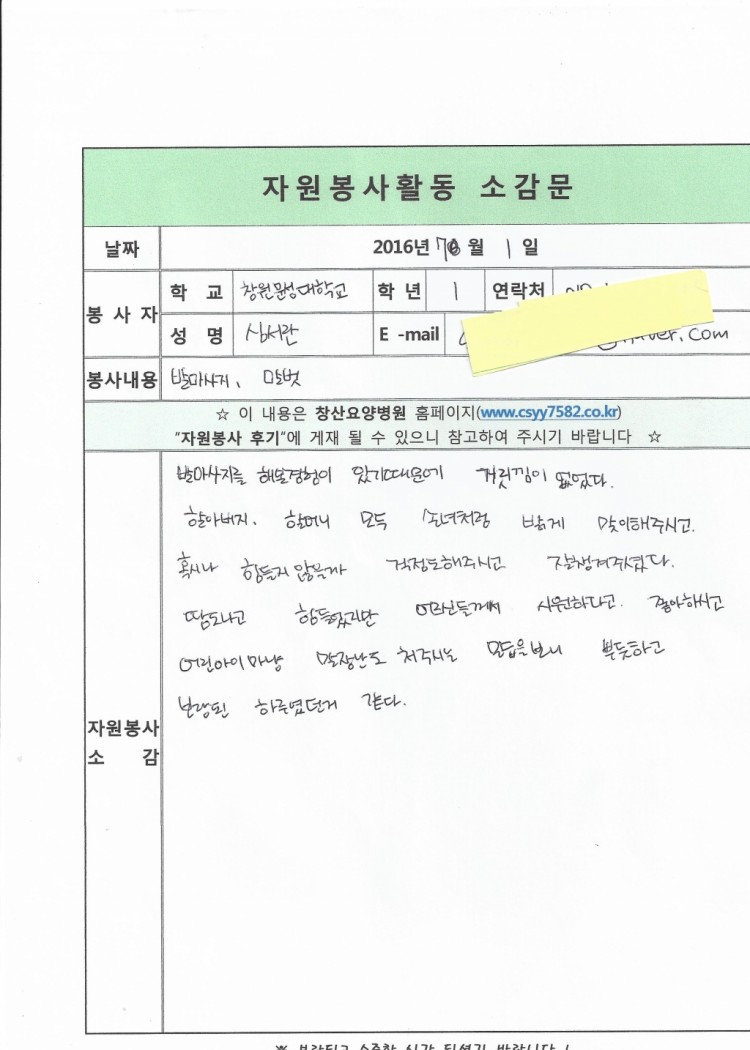 자원봉사활동 소감문
날짜 2016년 7월 1일
봉사자 학 교 창원문성대학교 학 년 1 연락처
성 명 심서란 E -mail @naver.com
봉사내용 발마사지, 말벗
☆ 이 내용은 창산요양병원 홈페이지(www.csyy7582.co.kr)
"자원봉사 후기"에 게재 될 수 있으니 참고하여 주시기 바랍니다 ☆
자원봉사 소 감
발마사지를 해본경험이 있기때문에 거릿낌이 없었다.
할아버지, 할머니 모두 소녀처럼 밝게 맞이해주시고.
혹시나 힘들지 않을까 걱정도해주시고 잘챙겨주셨다.
땀도나고 힘들었지만 어르신들께서 시원하다고. 좋아하시고
어린아이마냥 말장난도 쳐주시는 모습을보니 뿌듯하고
보람된 하루였던거 같다.